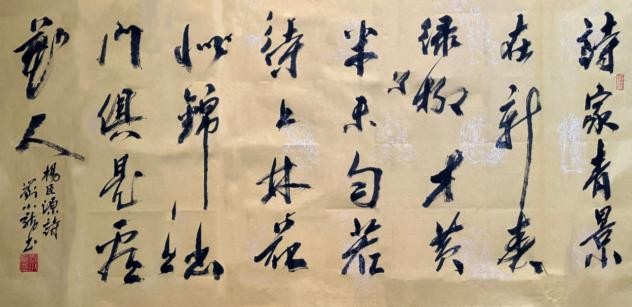 詩家青景
在新春
绿柳才黄
半未匀若
待上林花
似錦出
門俱是看
人
楊巨源詩
劉小龍书